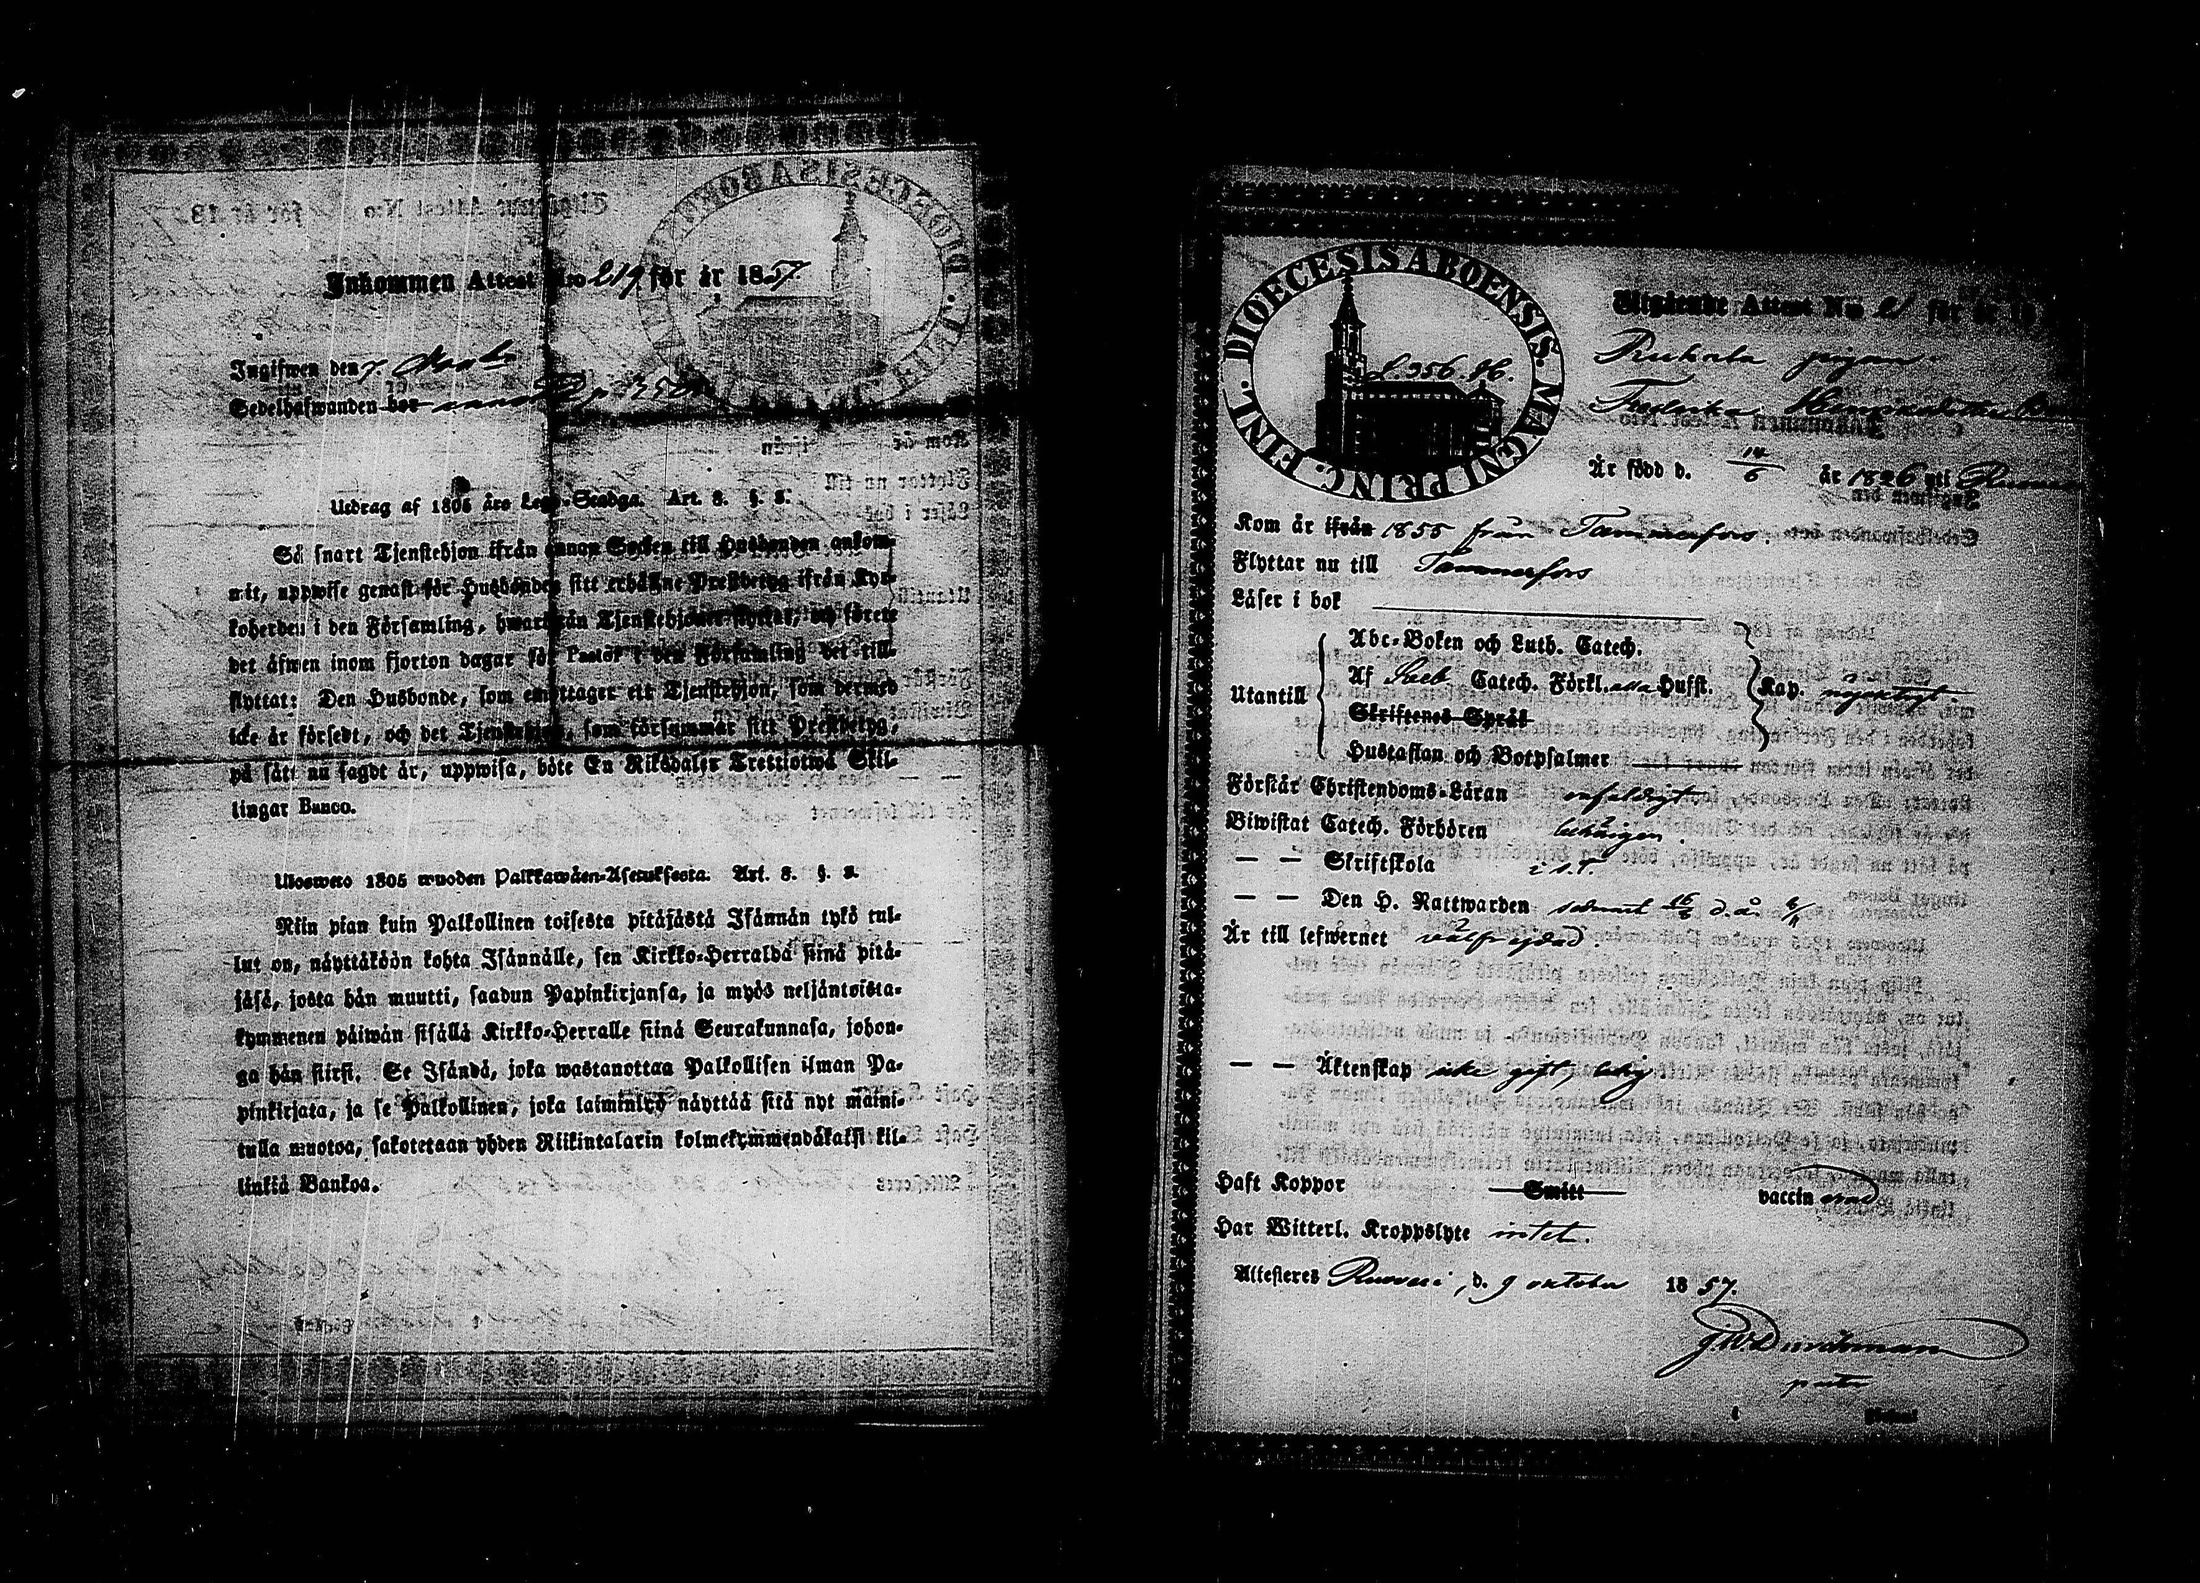 Inkommen Attest Nro 219 för år 1857
Ingifwen den 7.
Sedelhafwanden bor
Utdrag af 1805 års Lego-Stadga. Art. 8. §. 8.
Så snart Tjenstehjon ifrån annan Socken till Husbonden ankom-
mit, uppwise genast för Husbonden sitt erhållne Prestbetyg ifrån Kyr-
koherden i den Församling, hwarifrån Tjenstehjonet flyttat, och förete
det äfwen inom fjorton dagar för Pastor i den Församling det till-
flyttat: Den Husbonde, som emottager ett Tjenstehjon, som dermed
icke är försedt, och det Tjenstehjon, som försummar sitt Prestbetyg,
på sätt nu sagdt är, uppwisa, böte En Riksdaler Trettiotwå Skil-
lingar Banco.
Ulosweto 1805 wuoden Palkkawäen-Asetuksesta. Art. 8. §. 8.
Niin pian kuin Palkollinen toisesta pitäjästä Isännän tykö tul-
lut on, näyttäköön kohta Isännälle, sen Kirkko-Herralda siinä pitä-
jäsä, josta hän muutti, saadun Papinkirjansa, ja myös neljäntoista-
kymmenen päiwän sisällä Kirkko-Herralle siinä Seurakunnasa, johon-
ga hän siirsi. Se Isändä, joka wastanottaa Palkollisen ilman Pa-
pinkirjata, ja se Palkollinen, joka laiminlyö näyttää sitä nyt maini-
tulla muotoa, sakotetaan yhden Riikintalarin kolmekymmendäkaksi kil-
linkiä Bankoa.
DIOECESIS ABOENSIS. MAGNI PRINC. FINL.
Utgående Attest No 21 för år 18
Ruskola pigan
Fredrika
Är född d. 14/6 år 1826 uti
Kom år ifrån 1855 från Tammerfors.
Flyttar nu till Tammerfors
Läser i bok
Utantill
Abc-Boken och Luth. Catech.
Af Sveb. Catech. Förkl. Hufst.
Kap. nöjaktigt
Skriftenes Språk
Hustaflan och Botpsalmer
Förstår Christendoms-Läran enfaldigt
Biwistat Catech. Förhören behörigen
— — Skriftskola
— — Den H. Nattwarden senast
Är till lefwernet välfrejdad.
— — Äktenskap icke gift, ledig
Haft Koppor Smitt vaccinerad
Har Witterl. Kroppslyte intet.
Attesteres Rusvesi, d. 9 oktober 1857.